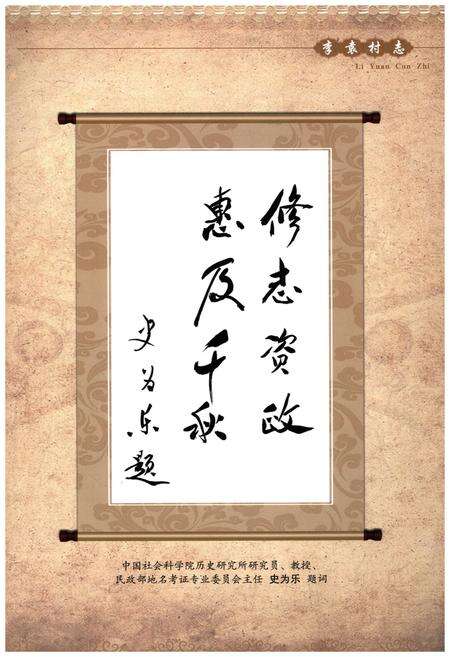 李袁村志
Li Yuan Cun Zhi
修志资政
惠及千秋
史为乐题
中国社会科学院历史研究所研究员、教授、
民政部地名考证专业委员会主任 史为乐 题词